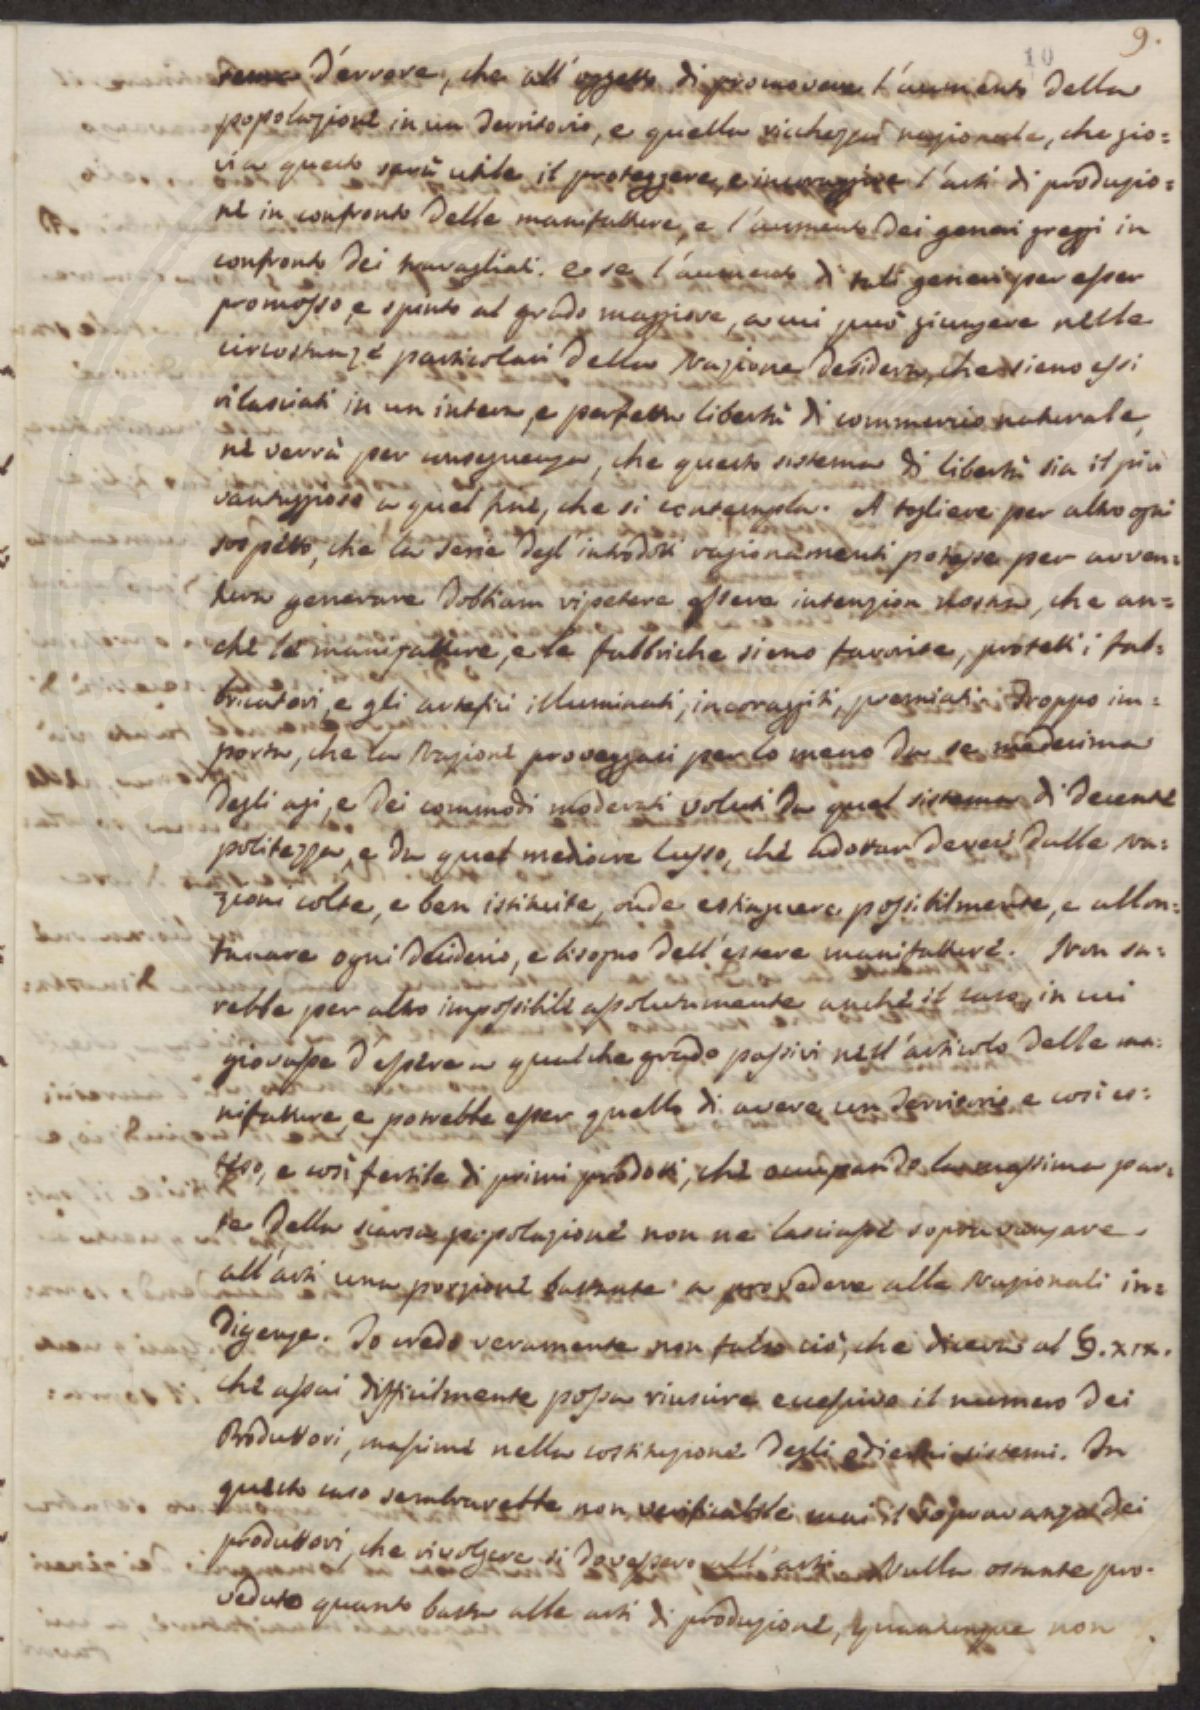 9.
10
tema d'errore, che all'oggetto di promovere l'aumento della
popolazione in un Territorio, e quella ricchezza nazionale, che gio=
vi a questo sarà utile il proteggere, e incoraggire l'arti di produzio=
ne in confronto delle manifatture, e l'aumento dei generi greggi in
confronto dei travagliati. e se l'aumento di tali generi per esser
promosso, e spinto al grado maggiore, a cui può giungere nelle
circostanze particolari della Nazione desidera, che sieno essi
rilasciati in un intera, e perfetta libertà di commercio naturale,
ne verrà per conseguenza, che questo sistema di libertà sia il più
vantaggioso a quel fine, che si contempla. A togliere per altro ogni
sospetto, che la serie degl'introdotti ragionamenti potesse per avven=
tura generare dobbiam ripetere essere intenzion nostra, che an=
che le manifatture, e le fabbriche sieno favorite, protetti i fab=
bricatori, e gli artefici illuminati, incoraggiti, premiati. Troppo im=
porta, che la Nazione proveggasi per lo meno da se medesima
degli agi, e dei commodi moderati voluti da quel sistema di decente
politezza, e da quel mediocre lusso, che adottar devesi dalle na=
zioni colte, e ben istituite, onde estinguere possibilmente, e allon=
tanare ogni desiderio, e bisogno dell'estere manifatture. Non sa=
rebbe per altro impossibile assolutamente anche il caso, in cui
giovasse d'essere a qualche grado passivi nell'articolo delle ma=
nifatture, e potrebbe esser quello di avere un Territorio e così es=
teso, e così fertile di primi prodotti, che occupando la massima par=
te della scarsa popolazione non ne lasciasse sopravanzare
all'arti una porzione bastante a provedere alle Nazionali in=
digenze. Io credo veramente non falso ciò, che diceva al §. XIX.
che assai difficilmente possa riuscire eccessivo il numero dei
Produttori, massime nella costituzione degli odierni sistemi. In
questo caso sembrarebbe non verificabile mai il sopravanzo dei
produttori, che rivolgere si dovessero all'arti. Nulla ostante pro=
veduto quanto basta alle arti di produzione, quantunque non